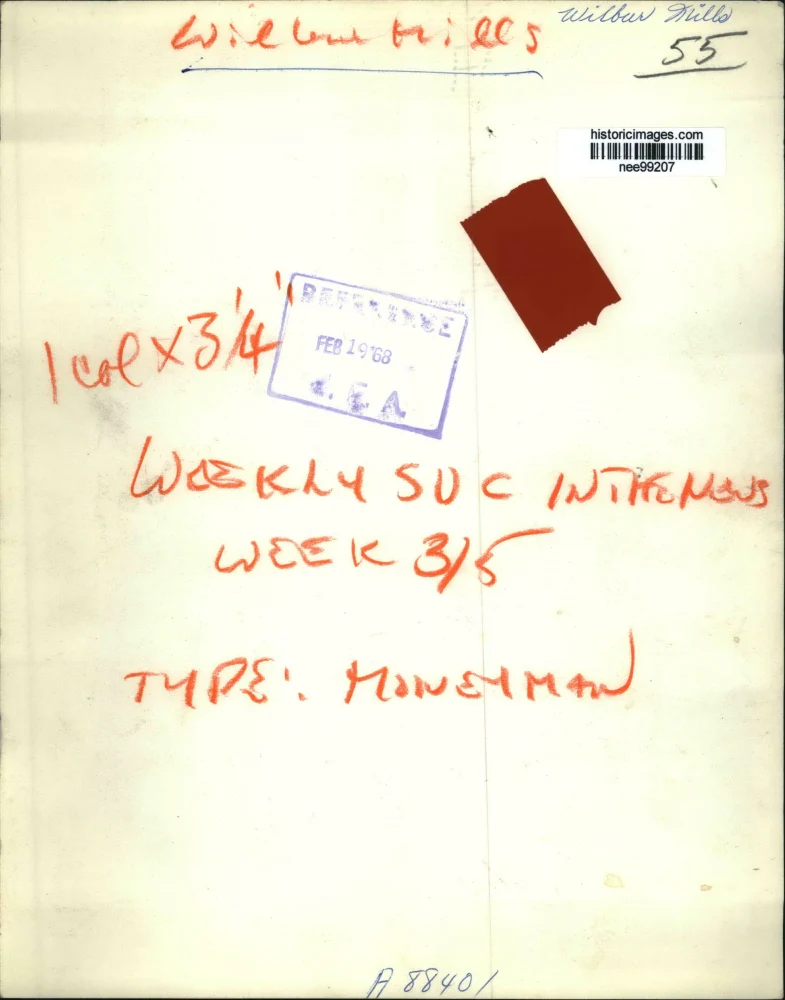 Wilbur Mills
Wilbur Mills
55
historicimages.com
nee99207
1 col x 3 1/4"
REFERENCE
FEB 19 '68
N. E. A.
WEEKLY SVC IN THE NEWS
WEEK 3/5
TYPE: MONEYMAN
A 88401